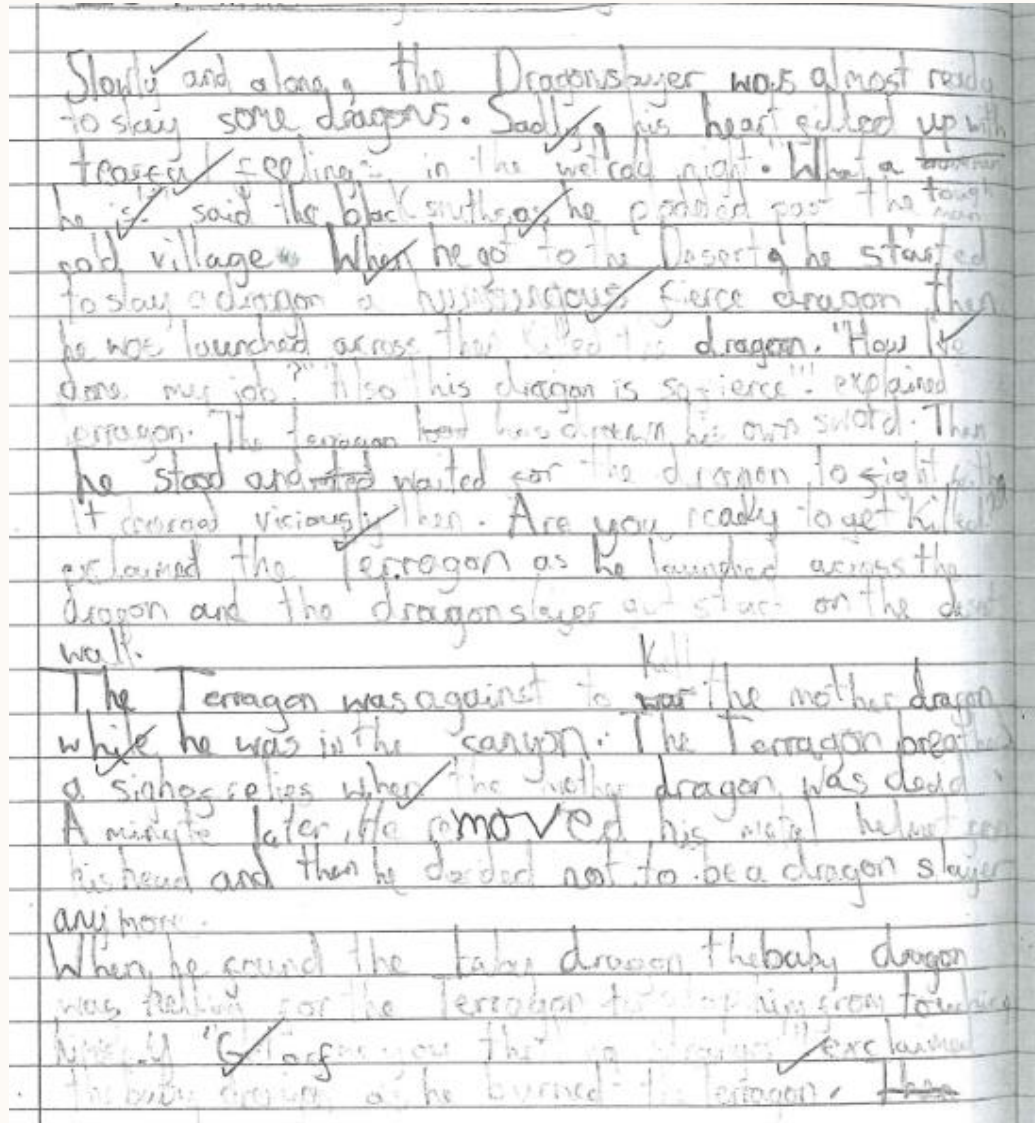 Slowly and alone, the Dragonslayer was almost ready
to slay some dragons. Sadly, his heart filled up with
tearful feelings in the wet cold night. "What a tough man
he is" said the blacksmith as he plodded past the
cold village. When he got to the Desert, he started
to slay a dragon a humungous fierce dragon then
he was launched across then killed the dragon. "How I've
done my job?" Also this dragon is so fierce"! explained
The terragon has drawn his own sword. Then
he stood and waited for the dragon to fight with
It roared viciously then. Are you ready to get killed?"
exclaimed the Terragon as he launched across the
dragon and the dragonslayer got stuck on the desert
wall.
The Terragon was against to kill the mother dragon
while he was in the canyon. The Terragon breathed
a sigh of relief when the mother dragon was dead.
A minute later, He removed his metal helmet
his head and then he decided not to be a dragon slayer
anymore.
When he found the baby dragon the baby dragon
was for the Terragon to stop him from touching
"Get off you exclaimed
the baby dragon as he burned the terragon.